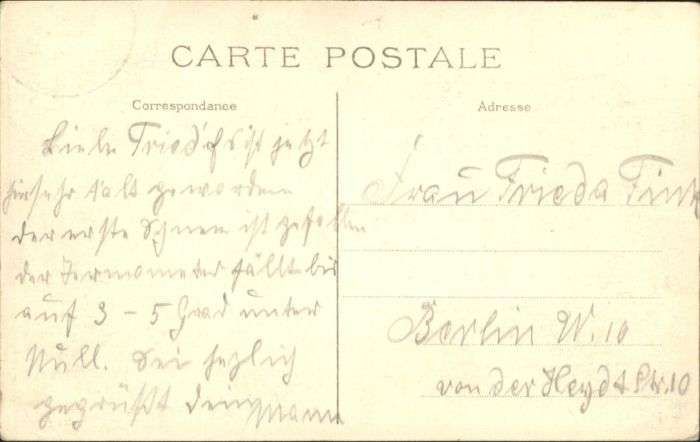 CARTE POSTALE
Correspondance
Adresse
Liebe Frieda! Es ist jetzt
hir sehr kalt geworden
der erste Schnee ist gefallen
der Termometer fällt bis
auf 3 - 5 Grad unter
Null. Sei herzlich
gegrüßt dein Mann
Frau Frieda Fink
Berlin W. 10
von der Heydt Str. 10